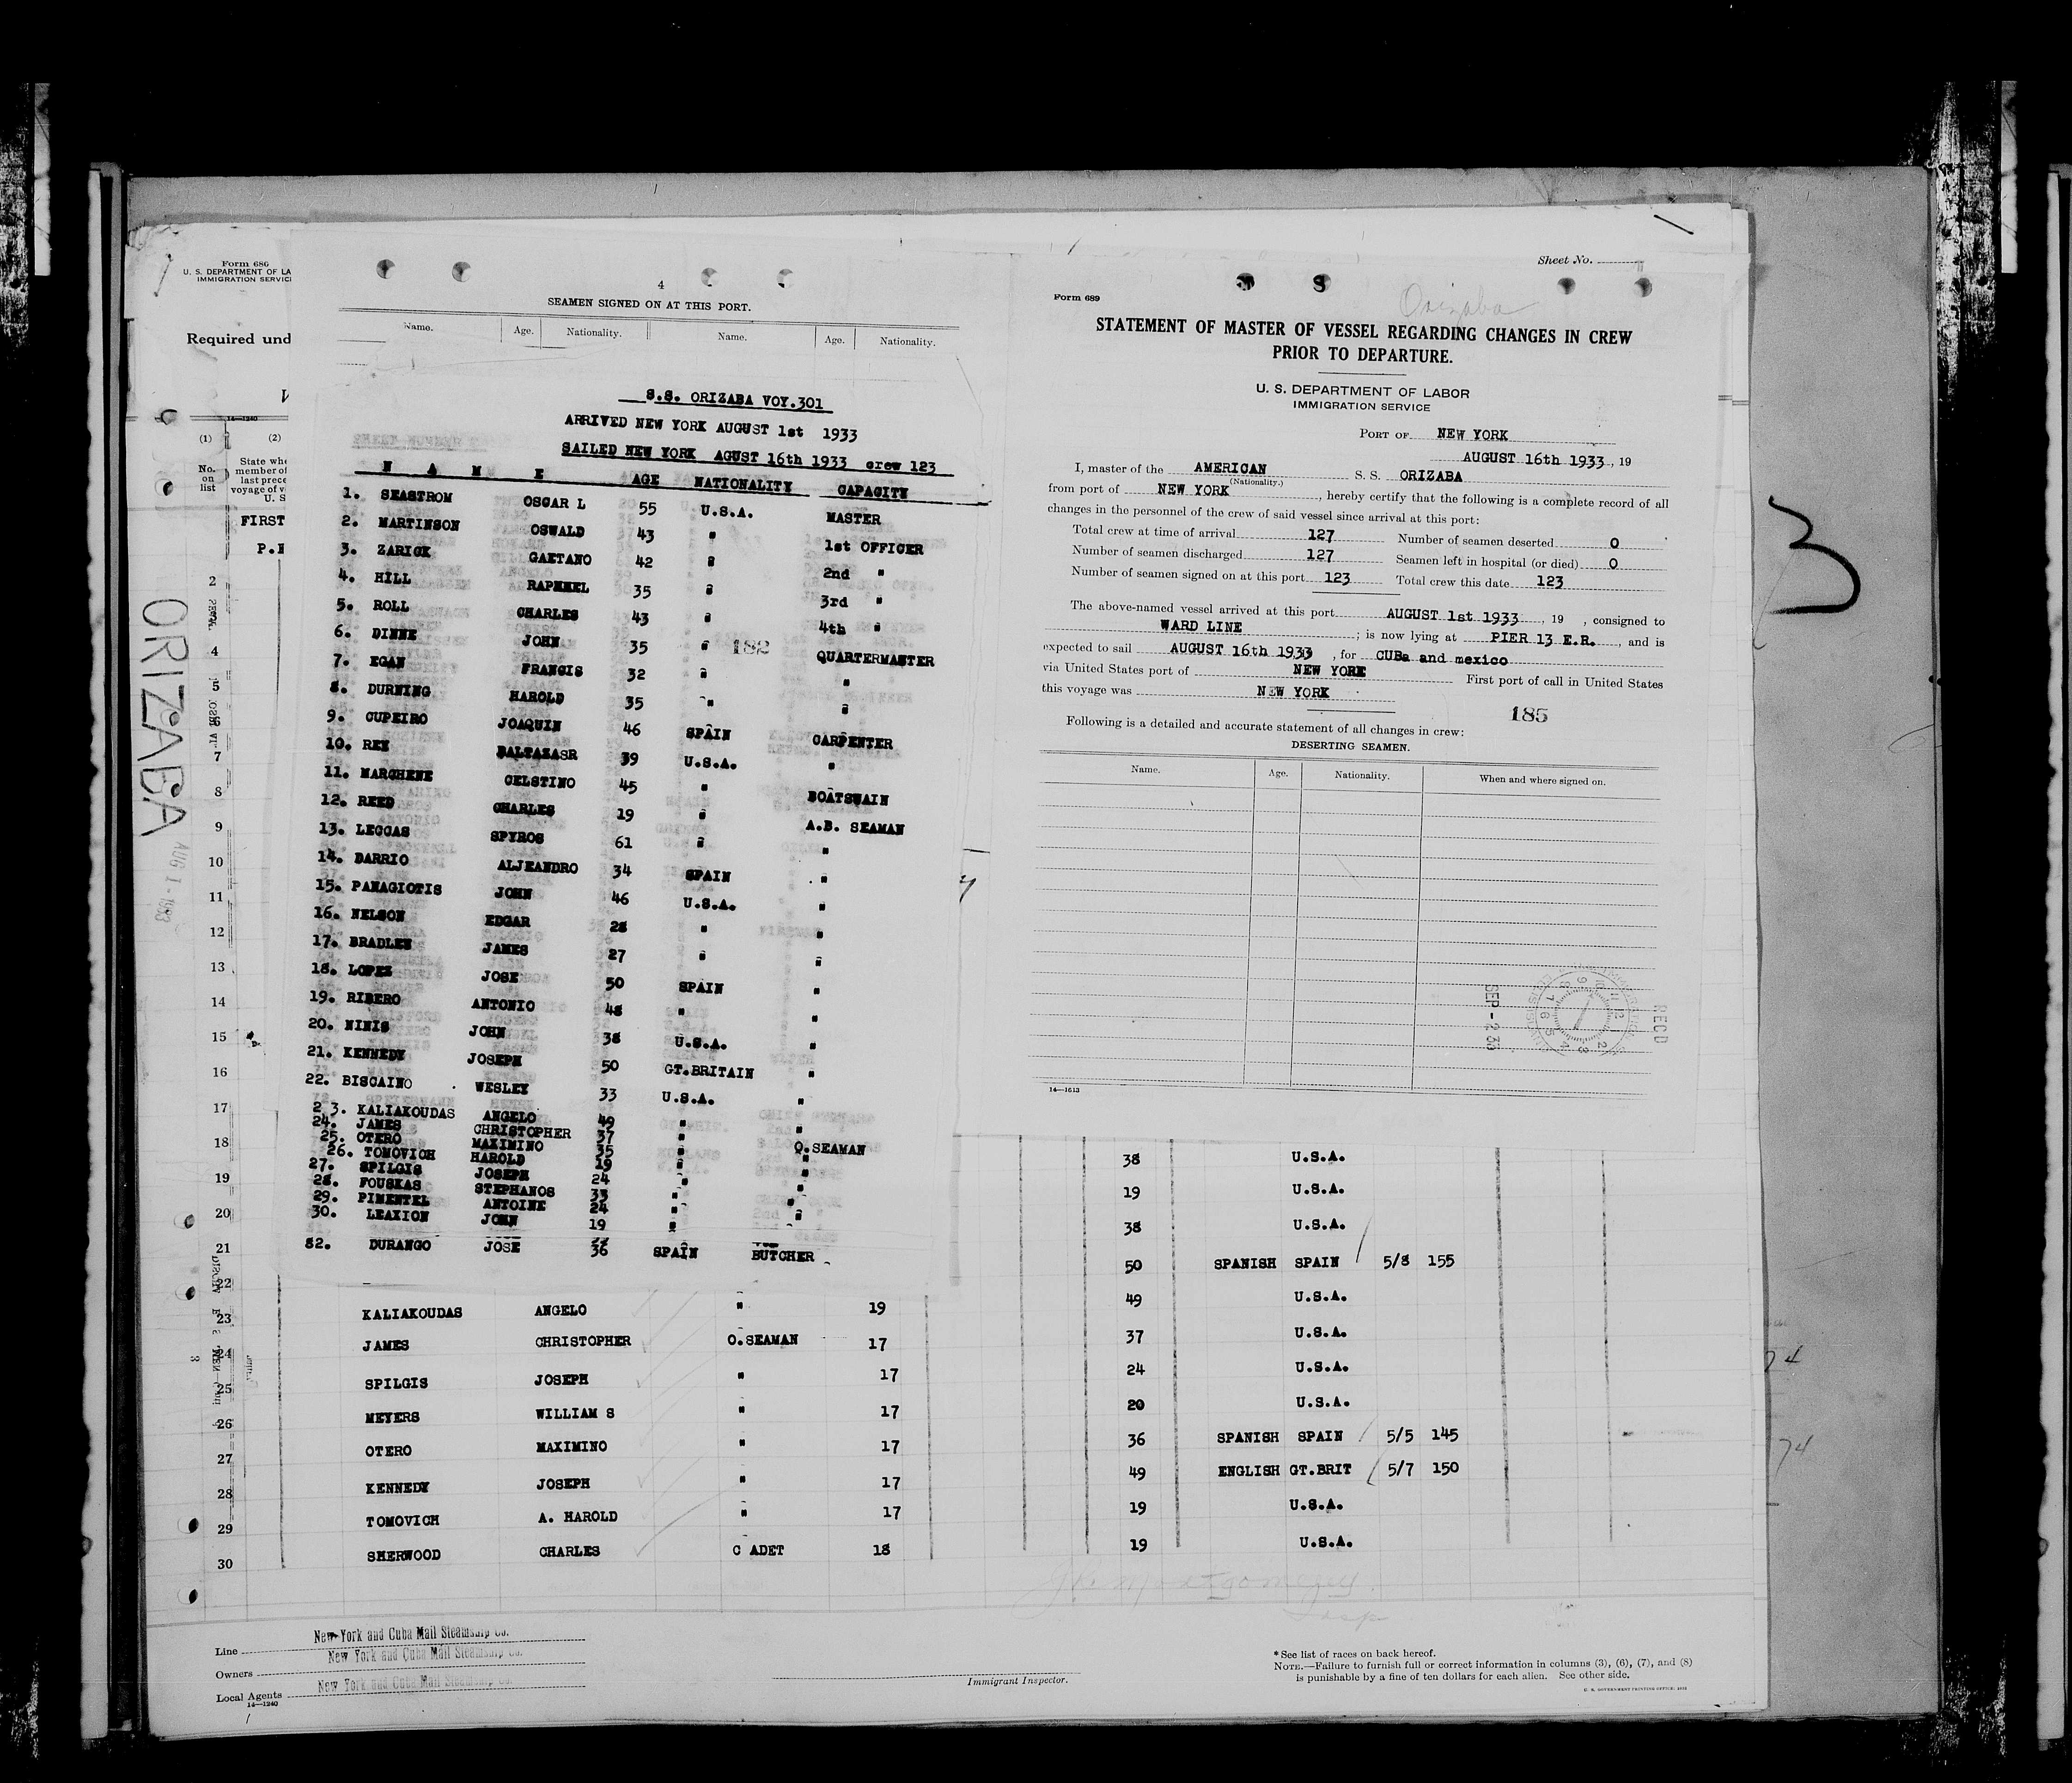 Form 686
U. S. DEPARTMENT OF LA
IMMIGRATION SERVICE
Required und
14—1240
(1) (2)
No. on list
State whe
member of
last prece
voyage of v
U. S
FIRST
P.
ORIZABA
AUG 1 - 1933
4
SEAMEN SIGNED ON AT THIS PORT.
Name. Age. Nationality. Name. Age. Nationality.
S.S. ORIZABA VOY.301
ARRIVED NEW YORK AUGUST 1st 1933
SAILED NEW YORK AGUST 16th 1933 crew 123
N A M E AGE NATIONALITY CAPACITY
1. SEASTROM OSCAR L 55 U.S.A. MASTER
2. MARTINSON OSWALD 43 " 1st OFFICER
3. ZARICK GAETANO 42 " 2nd "
4. HILL RAPHHEL 35 " 3rd "
5. ROLL CHARLES 43 " 4th "
6. DINNE JOHN 35 " QUARTERMASTER
182
7. EGAN FRANCIS 32 " "
8. DURNING HAROLD 35 " "
9. CUPEIRO JOAQUIN 46 SPAIN CARPENTER
10. REY BALTAZASR 39 U.S.A. "
11. MARCHENE CELSTINO 45 " BOATSWAIN
12. REED CHARLES 19 " A.B. SEAMAN
13. LEGGAS SPYROS 61 " "
14. BARRIO ALJEANDRO 34 SPAIN "
15. PANAGIOTIS JOHN 46 U.S.A. "
16. NELSON EDGAR 28 " "
17. BRADLEY JAMES 27 " "
18. LOPEZ JOSE 50 SPAIN "
19. RIBERO ANTONIO 48 " "
20. NINIS JOHN 38 U.S.A. "
21. KENNEDY JOSEPH 50 GT.BRITAIN "
22. BISCAINO WESLEY 33 U.S.A. "
2 3. KALIAKOUDAS ANGELO 49 " "
24. JAMES CHRISTOPHER 37 " O.SEAMAN
25. OTERO MAXIMINO 35 " "
26. TOMOVICH HAROLD 19 " "
27. SPILGIS JOSEPH 24 " "
28. FOUSKAS STEPHANOS 33 " "
29. PIMENTEL ANTOINE 24 " "
30. LEAXION JOHN 19 " "
82. DURANGO JOSE 36 SPAIN BUTCHER
Sheet No.
Form 689
Orizaba
STATEMENT OF MASTER OF VESSEL REGARDING CHANGES IN CREW
PRIOR TO DEPARTURE.
U. S. DEPARTMENT OF LABOR
IMMIGRATION SERVICE
PORT OF NEW YORK
AUGUST 16th 1933, 19
I, master of the AMERICAN S. S. ORIZABA
(Nationality.)
from port of NEW YORK, hereby certify that the following is a complete record of all
changes in the personnel of the crew of said vessel since arrival at this port:
Total crew at time of arrival 127 Number of seamen deserted 0
Number of seamen discharged 127 Seamen left in hospital (or died) 0
Number of seamen signed on at this port 123 Total crew this date 123
The above-named vessel arrived at this port AUGUST 1st 1933, 19 , consigned to
WARD LINE; is now lying at PIER 13 E.R., and is
expected to sail AUGUST 16th 1933, for CUBa and mexico
via United States port of NEW YORK First port of call in United States
this voyage was NEW YORK
185
Following is a detailed and accurate statement of all changes in crew:
DESERTING SEAMEN.
Name. Age. Nationality. When and where signed on.
RECD
SEP - 2 33
14—1613
3
2
4
5
7
8
9
10
11
12
13
14
15
16
17
18 38 U.S.A.
19 19 U.S.A.
20 38 U.S.A.
21 50 SPANISH SPAIN 5/8 155
22 49 U.S.A.
23 KALIAKOUDAS ANGELO " 19 37 U.S.A.
24 JAMES CHRISTOPHER O.SEAMAN 17 24 U.S.A.
25 SPILGIS JOSEPH " 17 20 U.S.A.
26 MEYERS WILLIAM S " 17 36 SPANISH SPAIN 5/5 145
27 OTERO MAXIMINO " 17 49 ENGLISH GT.BRIT 5/7 150
28 KENNEDY JOSEPH " 17 19 U.S.A.
29 TOMOVICH A. HAROLD " 17 19 U.S.A.
30 SHERWOOD CHARLES C ADET 18
74
74
Line New York and Cuba Mail Steamship Co.
Owners New York and Cuba Mail Steamship Co.
Local Agents New York and Cuba Mail Steamship Co.
14—1240
Immigrant Inspector.
* See list of races on back hereof.
NOTE.—Failure to furnish full or correct information in columns (3), (6), (7), and (8)
is punishable by a fine of ten dollars for each alien. See other side.
U. S. GOVERNMENT PRINTING OFFICE: 1931